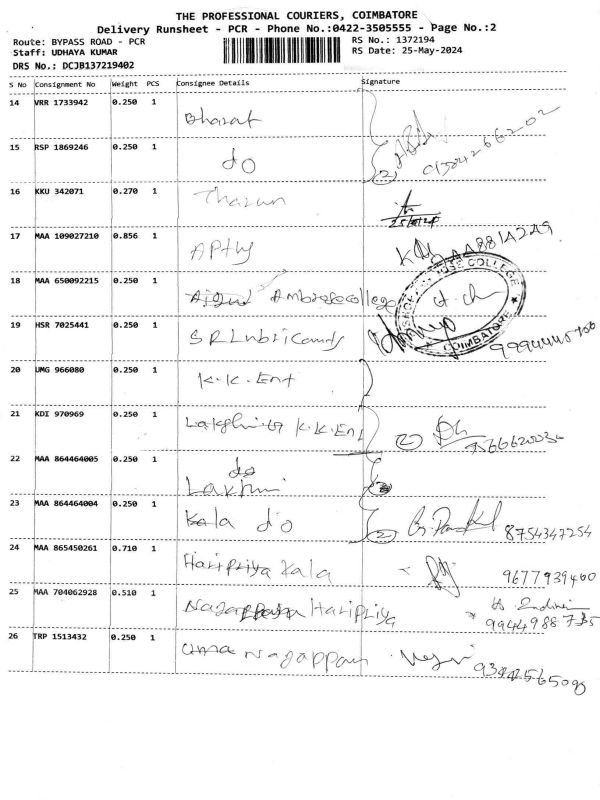 THE PROFESSIONAL COURIERS, COIMBATORE
Delivery Runsheet - PCR - Phone No.:0422-3505555 - Page No.:2
Route: BYPASS ROAD - PCR RS No.: 1372194
Staff: UDHAYA KUMAR RS Date: 25-May-2024
DRS No.: DCJB137219402
S No Consignment No Weight PCS Consignee Details Signature
14 VRR 1733942 0.250 1 Bharat
15 RSP 1869246 0.250 1 do
16 KKU 342071 0.270 1 Tharun
17 MAA 109027210 0.856 1
18 MAA 650092215 0.250 1 Ambrose college
19 HSR 7025441 0.250 1 S R Lubricants
20 UMG 966080 0.250 1 K.K. Ent
21 KDI 970969 0.250 1 K.K. Ent 2
22 MAA 864464005 0.250 1 do
Lakhmi
23 MAA 864464004 0.250 1 Kala do 2 8754347254
24 MAA 865450261 0.710 1 Haripriya Kala 9677939460
25 MAA 704062928 0.510 1 Haripriya
9944988735
26 TRP 1513432 0.250 1 uma Nagappan